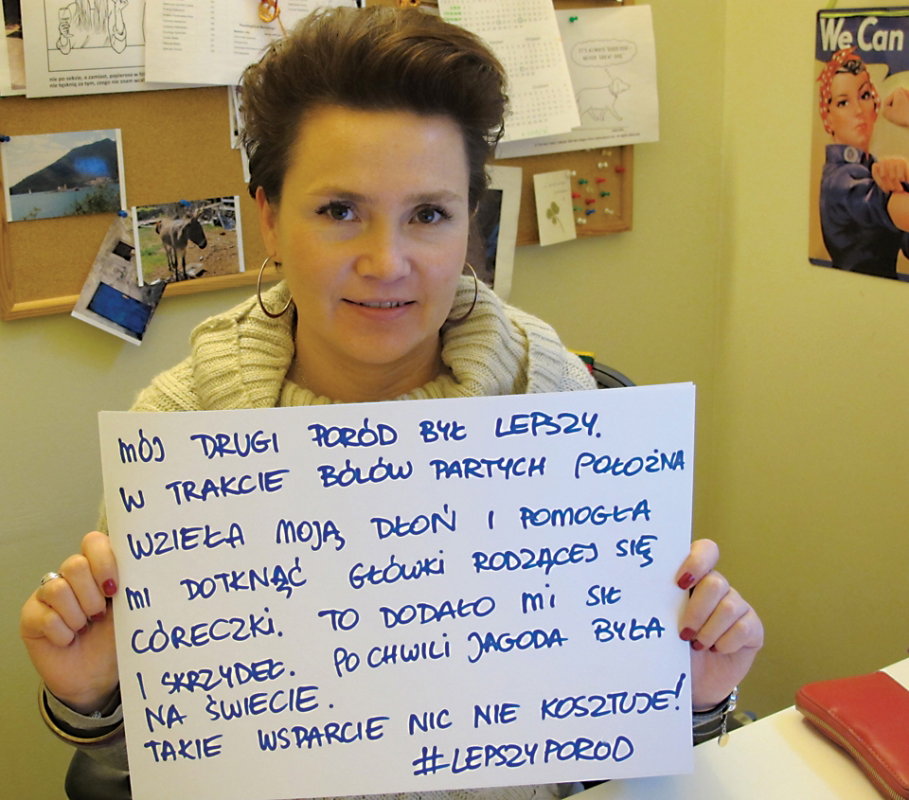 We Can
nie po seksie, a zamiast, papierosa w
IT'S ALWAYS
MÓJ DRUGI PORÓD BYŁ LEPSZY.
W TRAKCIE BÓLÓW PARTYCH POŁOŻNA
WZIEŁA MOJĄ DŁOŃ I POMOGŁA
MI DOTKNĄĆ GŁÓWKI RODZĄCEJ SIĘ
CÓRECZKI. TO DODAŁO MI SIŁ
I SKRZYDEŁ. PO CHWILI JAGODA BYŁA
NA ŚWIECIE.
TAKIE WSPARCIE NIC NIE KOSZTUJE!
#LEPSZYPOROD